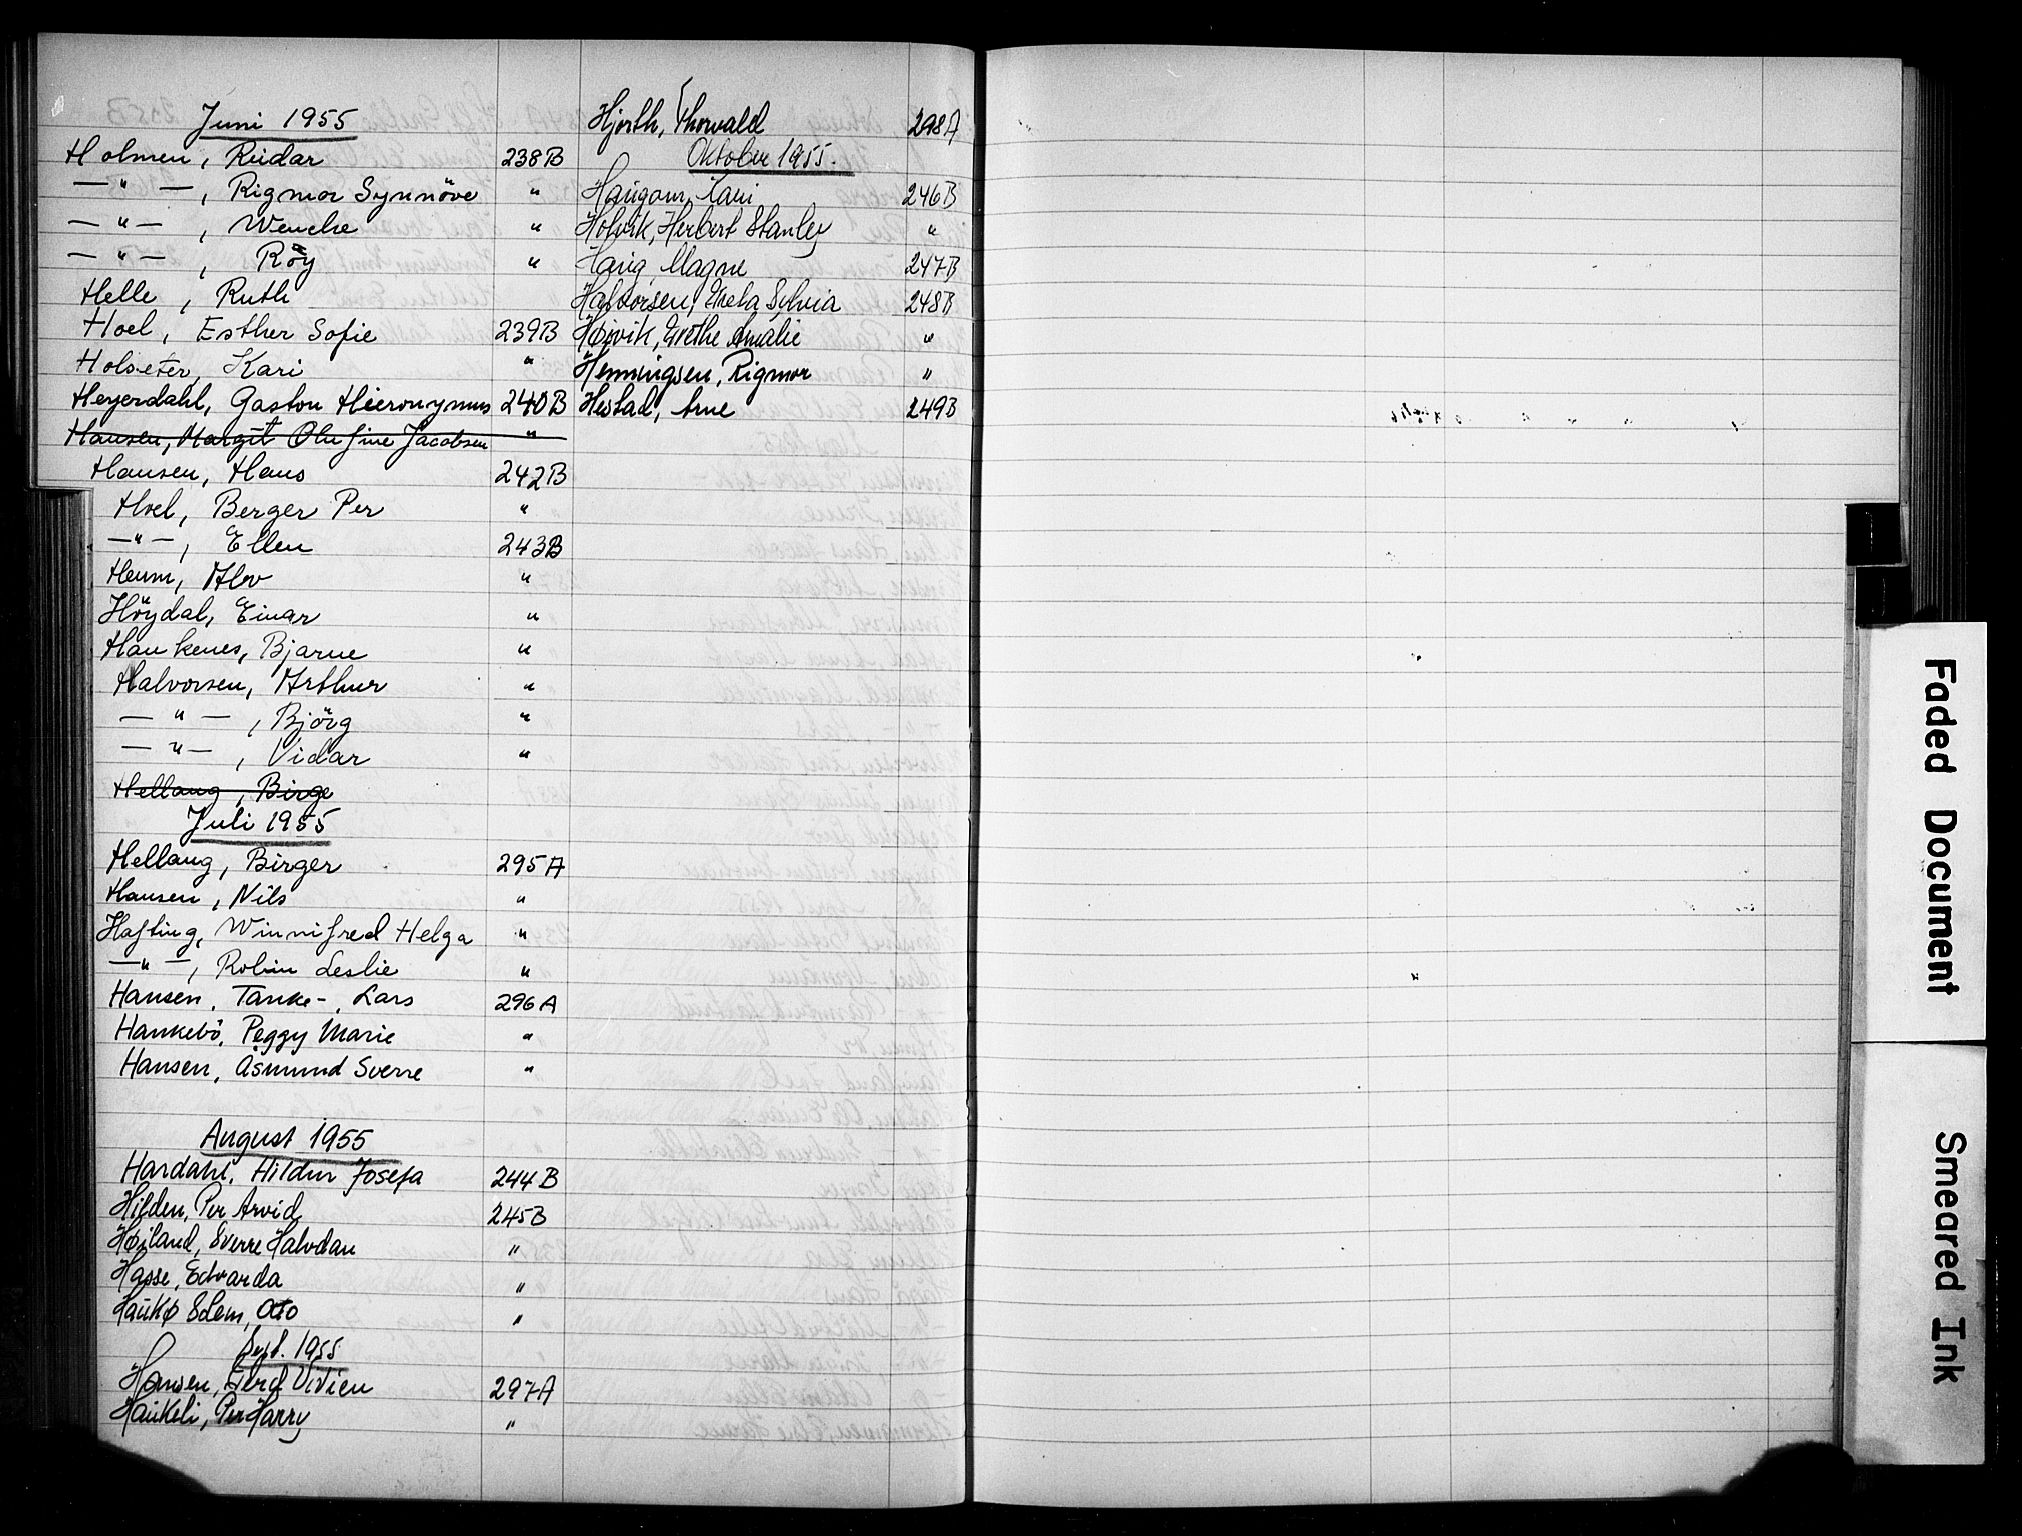 Juni 1955
Holmen, Reidar 238B
—"—, Rigmor Synnöve "
—"—, Wenche "
—"—, Röy "
Helle, Ruth
Hoel, Esther Sofie 239B
Holseter, Kari "
Heyerdahl, Gaston Hieronymus 240B
Hansen, Margit Olufine Jacobsen "
Hansen, Hans 242B
Hoel, Berger Per "
—"—, Ellen 243B
Heum, Alv "
Höydal, Einar "
Haukenes, Bjarne "
Halvorsen, Arthur "
—"—, Björg "
—"—, Vidar "
Hellang, Birge
Juli 1955
Hellang, Birger 295A
Hansen, Nils "
Hafting, Winnifred Helga "
—"—, Robin Leslie "
Hansen, Tanke-, Lars 296A
Haukebö, Peggy Marie "
Hansen, Åsmund Sverre "
August 1955
Hardahl, Hildur Josefa 244B
Hilden, Per Arvid 245B
Høiland, Sverre Halvdan "
Hasse, Edvarda "
Haukø Slem, Otto "
Sept. 1955
Hansen, Gerd Vivien 297A
Haukeli, Per Harry "
Hjorth, Thorvald 298A
Oktober 1955.
Haugom, 246B
Holvik, Herbert Stanley "
Haug, Magne 247B
Halvorsen, Sylvia 248B
Høivik, Grethe Amalie "
Henningsen, Rigmor "
Hestad, Arne 249B
Faded Document
Smeared Ink